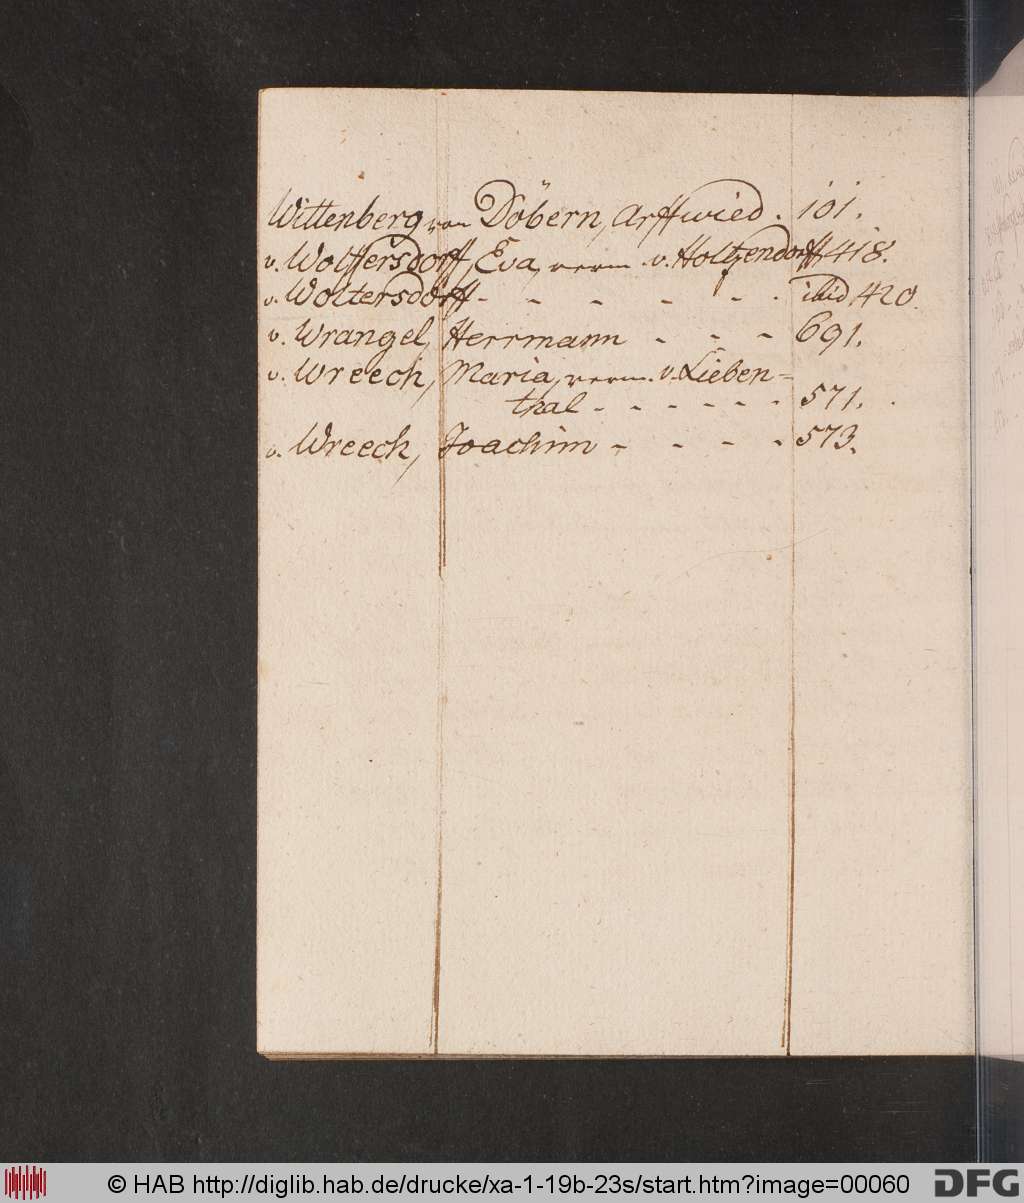 Wittenberg von Döbern, Arffwied. 101.
v. Wolffersdorff, Eva, verm. v. Holtzendorff 418.
v. Woltersdorff - - - - - . ibid 420
v. Wrangel, Herrmann - - - 691.
v. Wreech, Maria, verm. v. Lieben=
thal - - - - - - 571.
v. Wreech, Joachim - - - - 573.
© HAB http://diglib.hab.de/drucke/xa-1-19b-23s/start.htm?image=00060
DFG